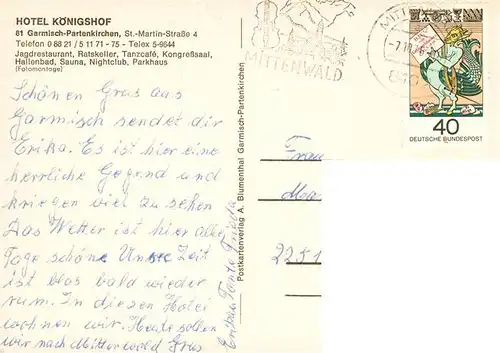 HOTEL KÖNIGSHOF
81 Garmisch-Partenkirchen, St.-Martin-Straße 4
Telefon 0 88 21 / 5 11 71 - 75 - Telex 5-9644
Jagdrestaurant, Ratskeller, Tanzcafé, Kongreßsaal,
Hallenbad, Sauna, Nightclub, Parkhaus
(Fotomontage)
Schönen Grus aus
Garmisch sendet dir
Erika. Es ist hier eine
herrliche Gegend und
kriegen viel zu sehen
Das Wetter ist hier alle
Tage schöne Unsre Zeit
ist blos bald wieder
rum. In diesen Hotel
wohnen wir. Heute sollen
wir nach Mittenwald Grus
Erika Tante Frieda
Postkartenverlag A. Blumenthal Garmisch-Partenkirchen
MITTENWALD
MITTE
40
DEUTSCHE BUNDESPOST
Frau
2251